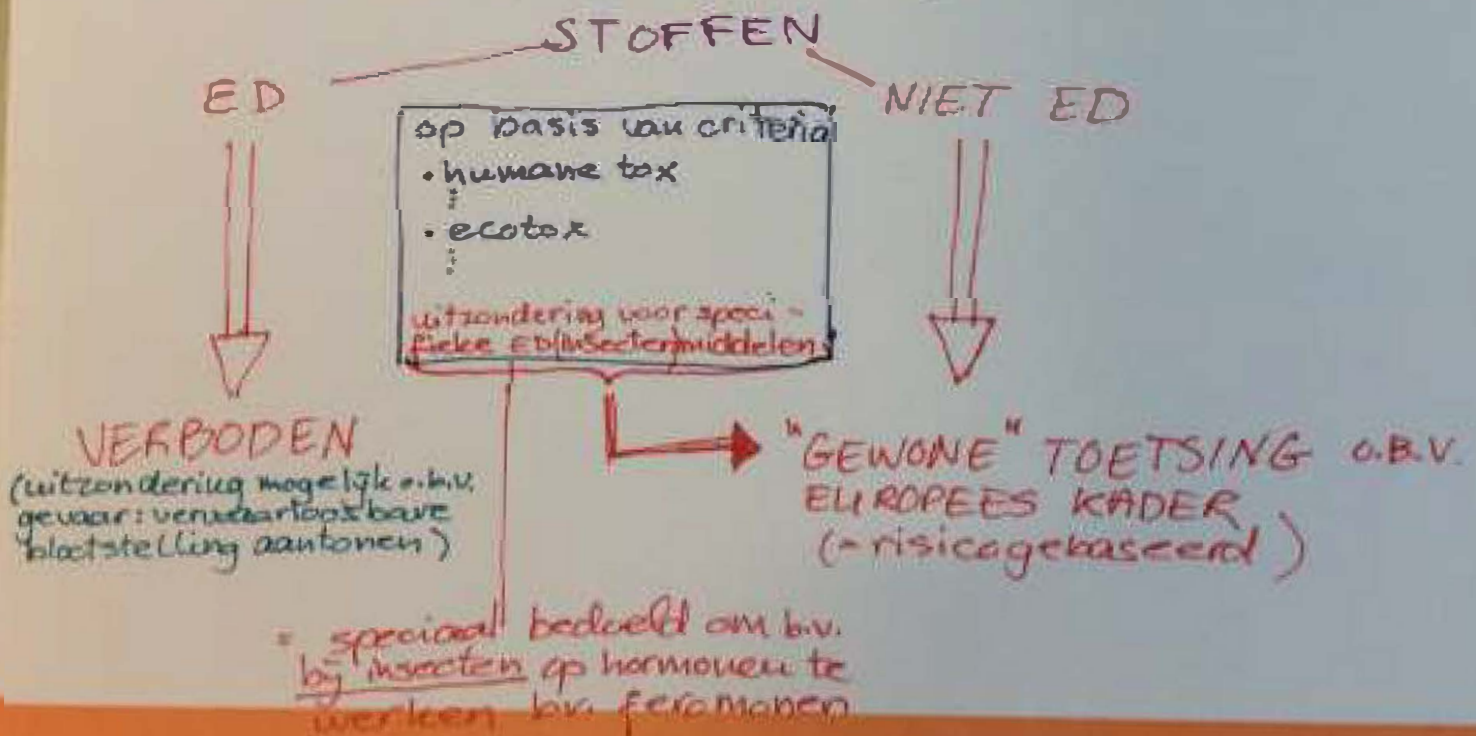 STOFFEN
ED
NIET ED
op basis van criteria
• humane tox
• ecotox
uitzondering voor speci-
fieke ED(insecten)middelen
VERBODEN
(uitzondering mogelijk o.b.v.
gevaar: verwaarloosbare
blootstelling aantonen)
"GEWONE" TOETSING O.B.V.
EUROPEES KADER
(= risicogebaseerd)
= speciaal bedoeld om b.v.
bij insecten op hormonen te
werken bv. feromonen